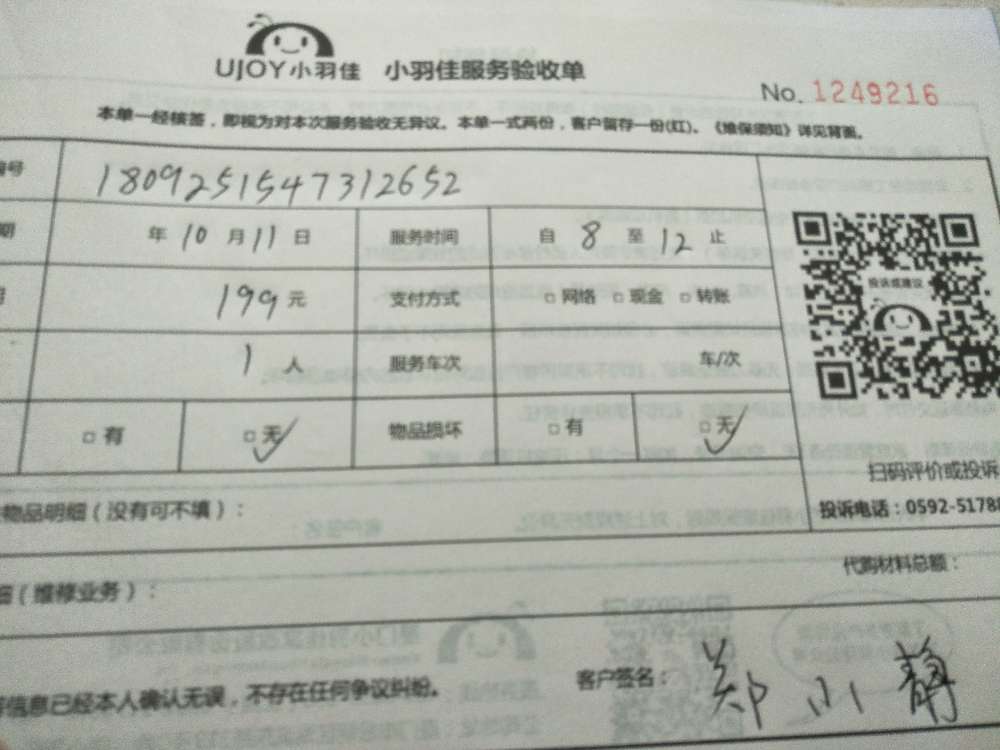 UJOY小羽佳 小羽佳服务验收单
No. 1249216
本单一经核签，即视为对本次服务验收无异议。本单一式两份，客户留存一份(红)。《维保须知》详见背面。
号 1809251547312652
期 年 10 月 11 日 服务时间 自 8 至 12 止
199 元 支付方式 □ 网络 □ 现金 □ 转账
1 人 服务车次 车/次
□ 有 □ 无 物品损坏 □ 有 □ 无
投诉或建议
扫码评价或投诉
投诉电话：0592-5178
物品明细（没有可不填）：
代购材料总额：
细（维修业务）：
信息已经本人确认无误，不存在任何争议纠纷。 客户签名： 郑小静